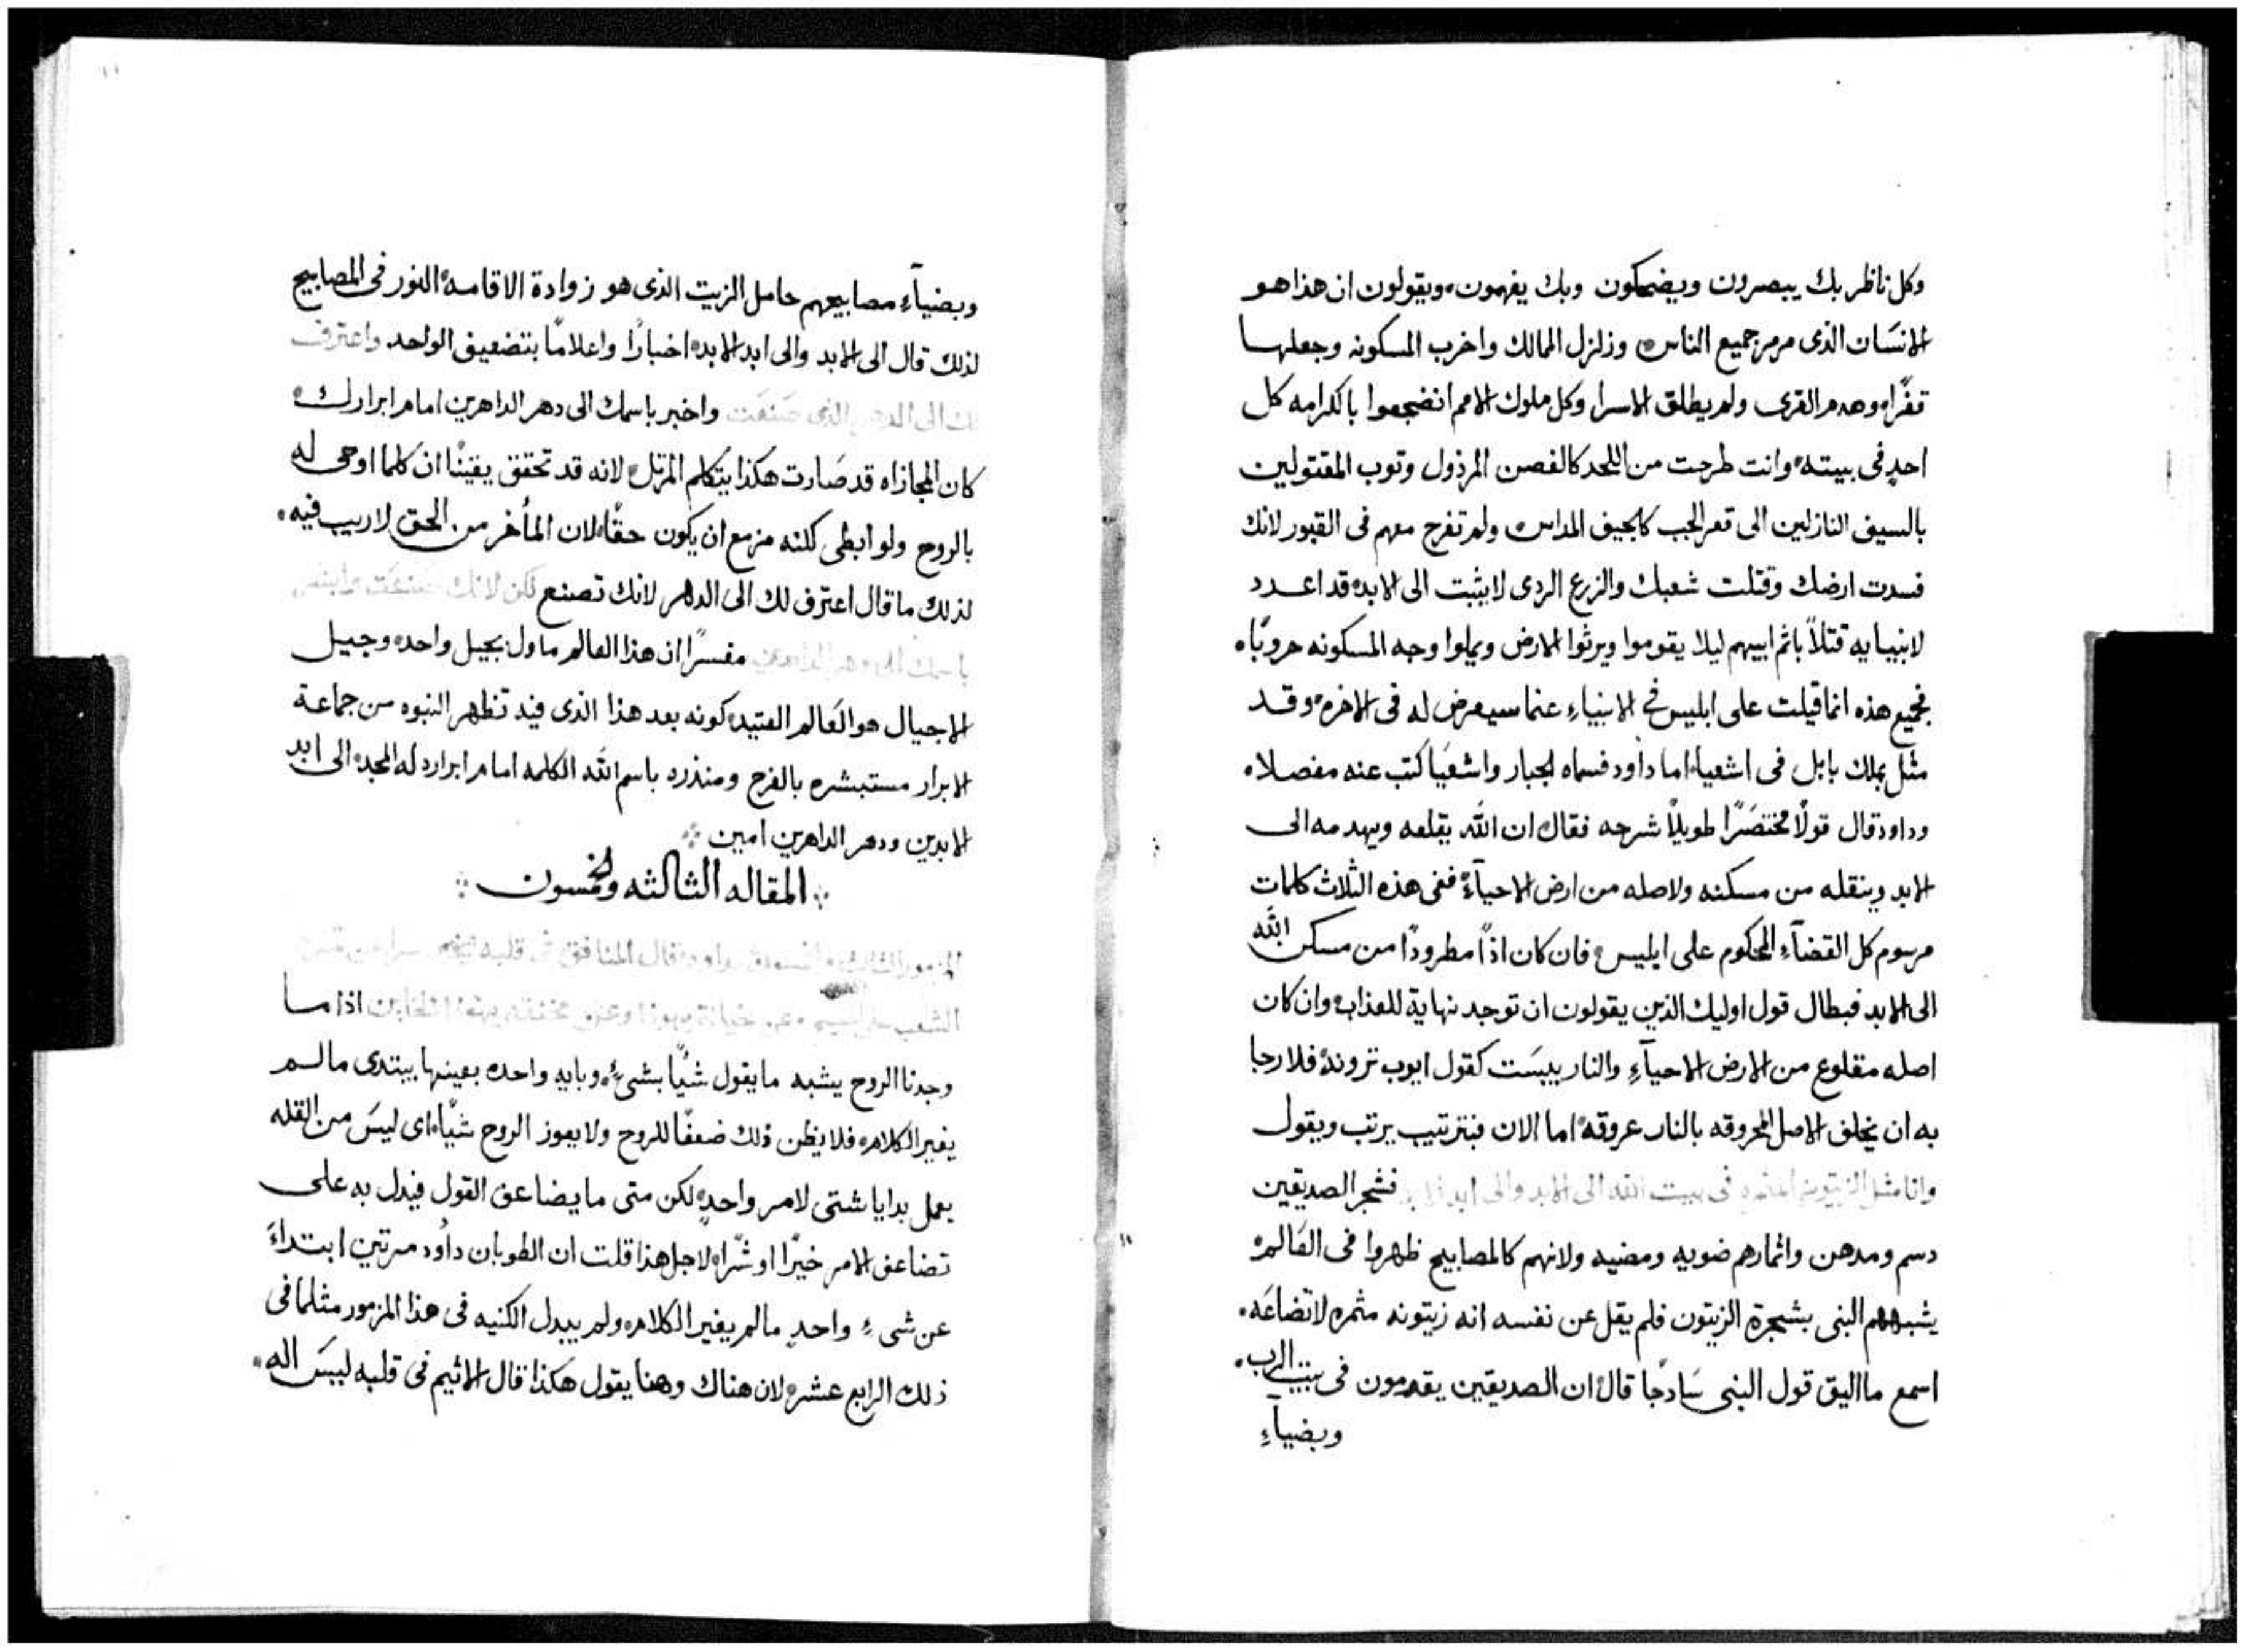 وكل ناظر بك يبصرون ويضحكون وبك يفهمون، ويقولون ان هذا هو
الانسَان الذى مرمر جميع الناس ه وزلزل الممالك واخرب المسكونه وجعلها
قفرًا ه وهدم القرى ولم يطلق الاسرا، وكل ملوك الامم انضجعوا باكرامه كل
احدٍ فى بيته ه وانت طرحت من اللحد كالغصن المرذول وتوب المقتولين
بالسيف النازلين الى قعر الجب كالجيف المداس ه ولم تفرح معهم فى القبور لانك
فسدت ارضك وقتلت شعبك والزرع الردى لا يثبت الى الابد ه قد اعدد
لابنيايه قتلاً باثم ابيهم ليلا يقوموا ويرثوا الارض ويملوا وجه المسكونه حروبًا ه
فجميع هذه انما قيلت على ابليس فى الانبياءِ عنما سيعرض له فى الاخره ه وقد
مثل بملك بابل فى اشعيا ه اما داود فسماه الجبار واشعيَا كتب عنه مفصلا ه
وداود قال قولًا مختصَرًا طويلًا شرحه فقال ه ان الله يقلعه ويهدمه الى
الابد وينقله من مسكنه ولاصله من ارض الاحيآءِ ه ففى هذه الثلاث كلمات
مرسوم كل القضآءِ المحكوم على ابليس ه فان كان اذًا مطرودًا من مسكن الله
الى الابد فبطال قول اوليك الذين يقولون ان توجد نهاية للعذاب ه وان كان
اصله مقلوع من الارض الاحيآءِ والنار يبسَت كقول ايوب تزونه ه فلا رجا
به ان يخلف الاصل المحروقه بالنار عروقه ه اما الان فبترتيب يرتب ويقول
وانا مثل الزيتونه المثمره فى بيت الله الى الابد والى ابد الابد فشجر الصديقين
دسم ومدهن واثمارهم ضويه ومضيه ولانهم كالمصابيح ظهروا فى العَالم ه
يشبههم النبى بشجرة الزيتون فلم يقل عن نفسه انه زيتونه مثمره لاتضاعَه ه
اسمع ما اليق قول النبى سَادجًا قال ه ان الصديقين يقدمون فى بيت الرب ه
وبضيآءِ
وبضيآءِ مصابيحهم حامل الزيت الذى هو زوادة الاقامه ه النور فى المصابيح
لذلك قال الى الابد والى ابد الابد ه اخبارًا واعلامًا بتضعيف الواحد واعترف
لك الى الدهر الذى صَنعَت واخبر باسمك الى دهر الداهرين امام ابرارك ه
كان المجازاه قد صَارت هكذا يتكلم المرتل ه لانه قد تحقق يقينًا ان كلما اوحى له
بالروح ولو ابطى كلنه مزمع ان يكون حقًا ه لان المأخر من الحق لا ريب فيه ه
لذلك ما قال اعترف لك الى الدهر لانك تصنع لكن لانك صنعَت
مفسرًا ان هذا العالم ماول بجيل واحد ه وجيل
الاجيال هو العَالم العتيد ه كونه بعد هذا الذى فيه تظهر النبوه من جماعة
الابرار مستبشره بالفرح ومنذره باسم الله الكلمه امام ابراره له المجد ه الى ابد
الابدين ودهر الداهرين امين
المقاله الثالثه والخمسون
المزمور الثالث داود ه قال المنافق فى قلبه
اذا ما
وجدنا الروح يشبه ما يقول شيًا بشىءٍ ه وبايه واحده بعينها يبتدى ما لم
يغير الكلام ه فلا يظن ذلك ضعفًا للروح ولا يعوز الروح شيًا ه اى ليسَ من القله
يعمل بدايا شتى لامر واحدٍ ه لكن متى ما يضاعف القول فيدل به على
تضاعف الامر خيرًا او شرًا ه لاجل هذا قلت ان الطوبان داُود مرتين ابتداءَ
عن شىءٍ واحدٍ ما لم يغير الكلام ه ولم يبدل الكنيه فى هذا المزمور مثلما فى
ذلك الرابع عشر ه لان هناك وهنا يقول هكذا ه قال الاثيم فى قلبه ليسَ اله ه